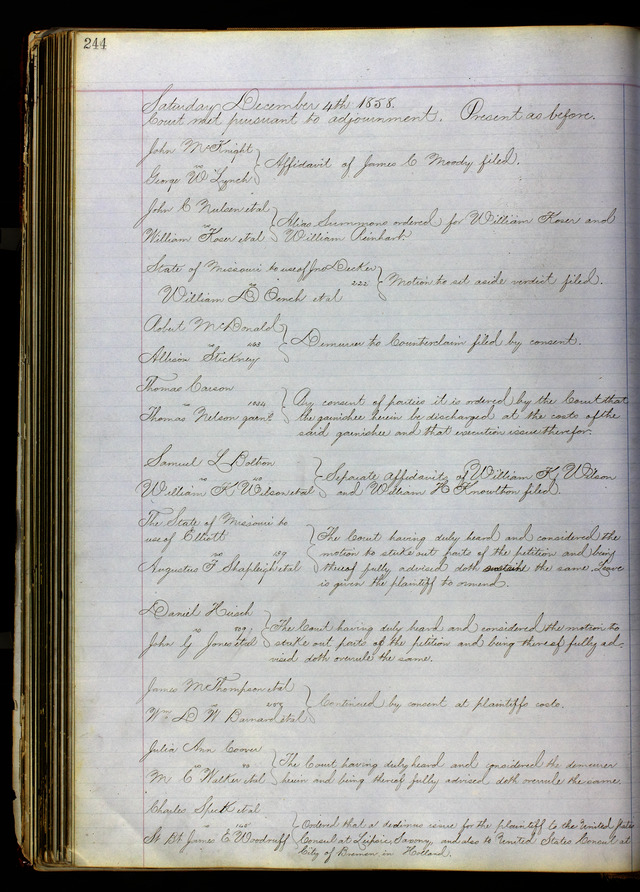 244
Saturday December 4th 1858.
Court met pursuant to adjournment. Present as before.
John McKnight
vs
George W Lynch
Affidavit of James C Moody filed.
John C Nulsen etal
vs
William Koser etal
Alias Summons ordered for William Koser and
William Reinhart.
State of Missouri to use of Jno Decker
vs 222
William D Bench etal
Motion to set aside verdict filed.
Robert McDonald
vs
Allison Stickney
Demurrer to Counterclaim filed by consent.
Thomas Carson
vs 1034
Thomas Nelson garnt
By consent of parties it is ordered by the Court that
the garnishee herein be discharged at the costs of the
said garnishee and that execution issue therefor.
Samuel L Bolton
vs
William K Wilson etal
Separate Affidavits of William K Wilson
and William H Knowlton filed.
The State of Missouri to
use of Elliott
vs 189
Augustus F Shapleigh etal
The Court having duly heard and considered the
motion to strike out parts of the petition and being
thereof fully advised doth sustain the same. Leave
is given the plaintiff to amend.
Daniel Hirsch
vs
John G Jones etal
The Court having duly heard and considered the motion to
strike out parts of the petition and being thereof fully ad-
vised doth overrule the same.
James M Thompson etal
vs
Wm D W Barnard etal
Continued by consent at plaintiffs costs.
Julia Ann Coover
vs
M C Walker etal
The Court having duly heard and considered the demurrer
herein and being thereof fully advised doth overrule the same.
Charles Speck etal
vs
St Bt James E Woodruff
Ordered that a dedimus issue for the plaintiff to the United States
Consul at Leipsic, Saxony, and also to United States Consul at
City of Bremen in Holland.